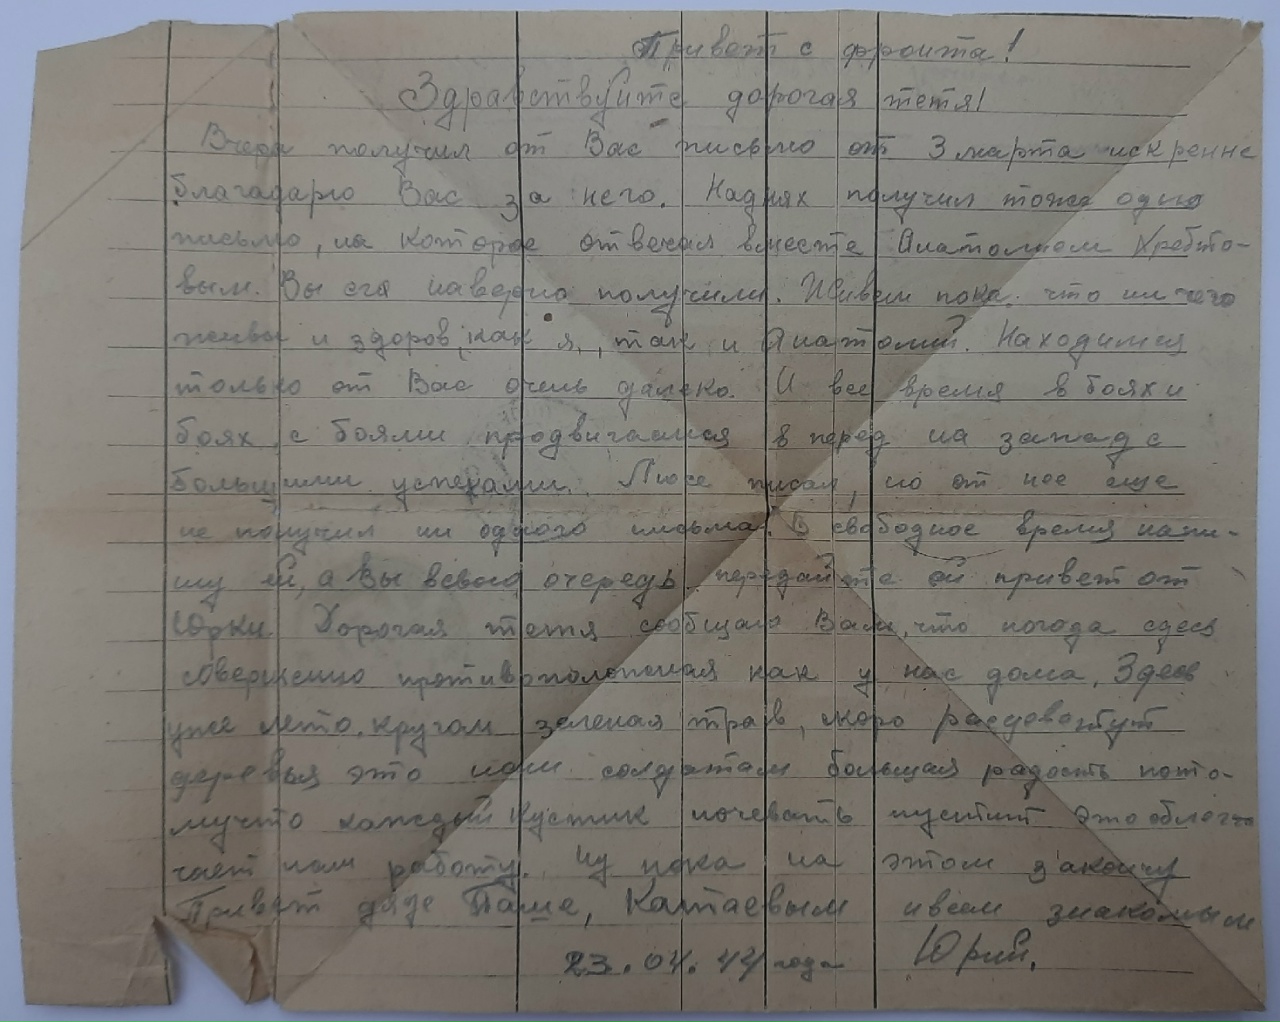 Привет с фронта!
Здравствуйте дорогая тетя!
Вчера получил от Вас письмо от 3 марта искренне
благадарю Вас за него. Наднях получил тоже одно
письмо, на которое отвечал вместе Анатолием Хребто-
вым. Вы его наверно получили. Живем пока что ни чего
живы и здоров, как я, так и Анатолий. Находимся
только от Вас очень далеко. И все время в боях и
боях, с боями продвигаемся в перед на запад с
большими успехами. Люсе писал, но от нее еще
не получил ни одного письма. В свободное время напи-
шу ей, а Вы всвою очередь передайте ей привет от
Юрки. Дорогая тетя сообщаю Вам, что погода здесь
совершенно противоположная как у нас дома. Здесь
уже лето, кругом зеленая трав, скоро расцветут
деревья это нам солдатам большая радость пото-
мучто каждый кустик ночевать пустит это облег-
чает нам работу. Ну пока на этом закончу
Привет дяде Паше, Катаевым ивсем знакомым
23.04.44 года Юрий.